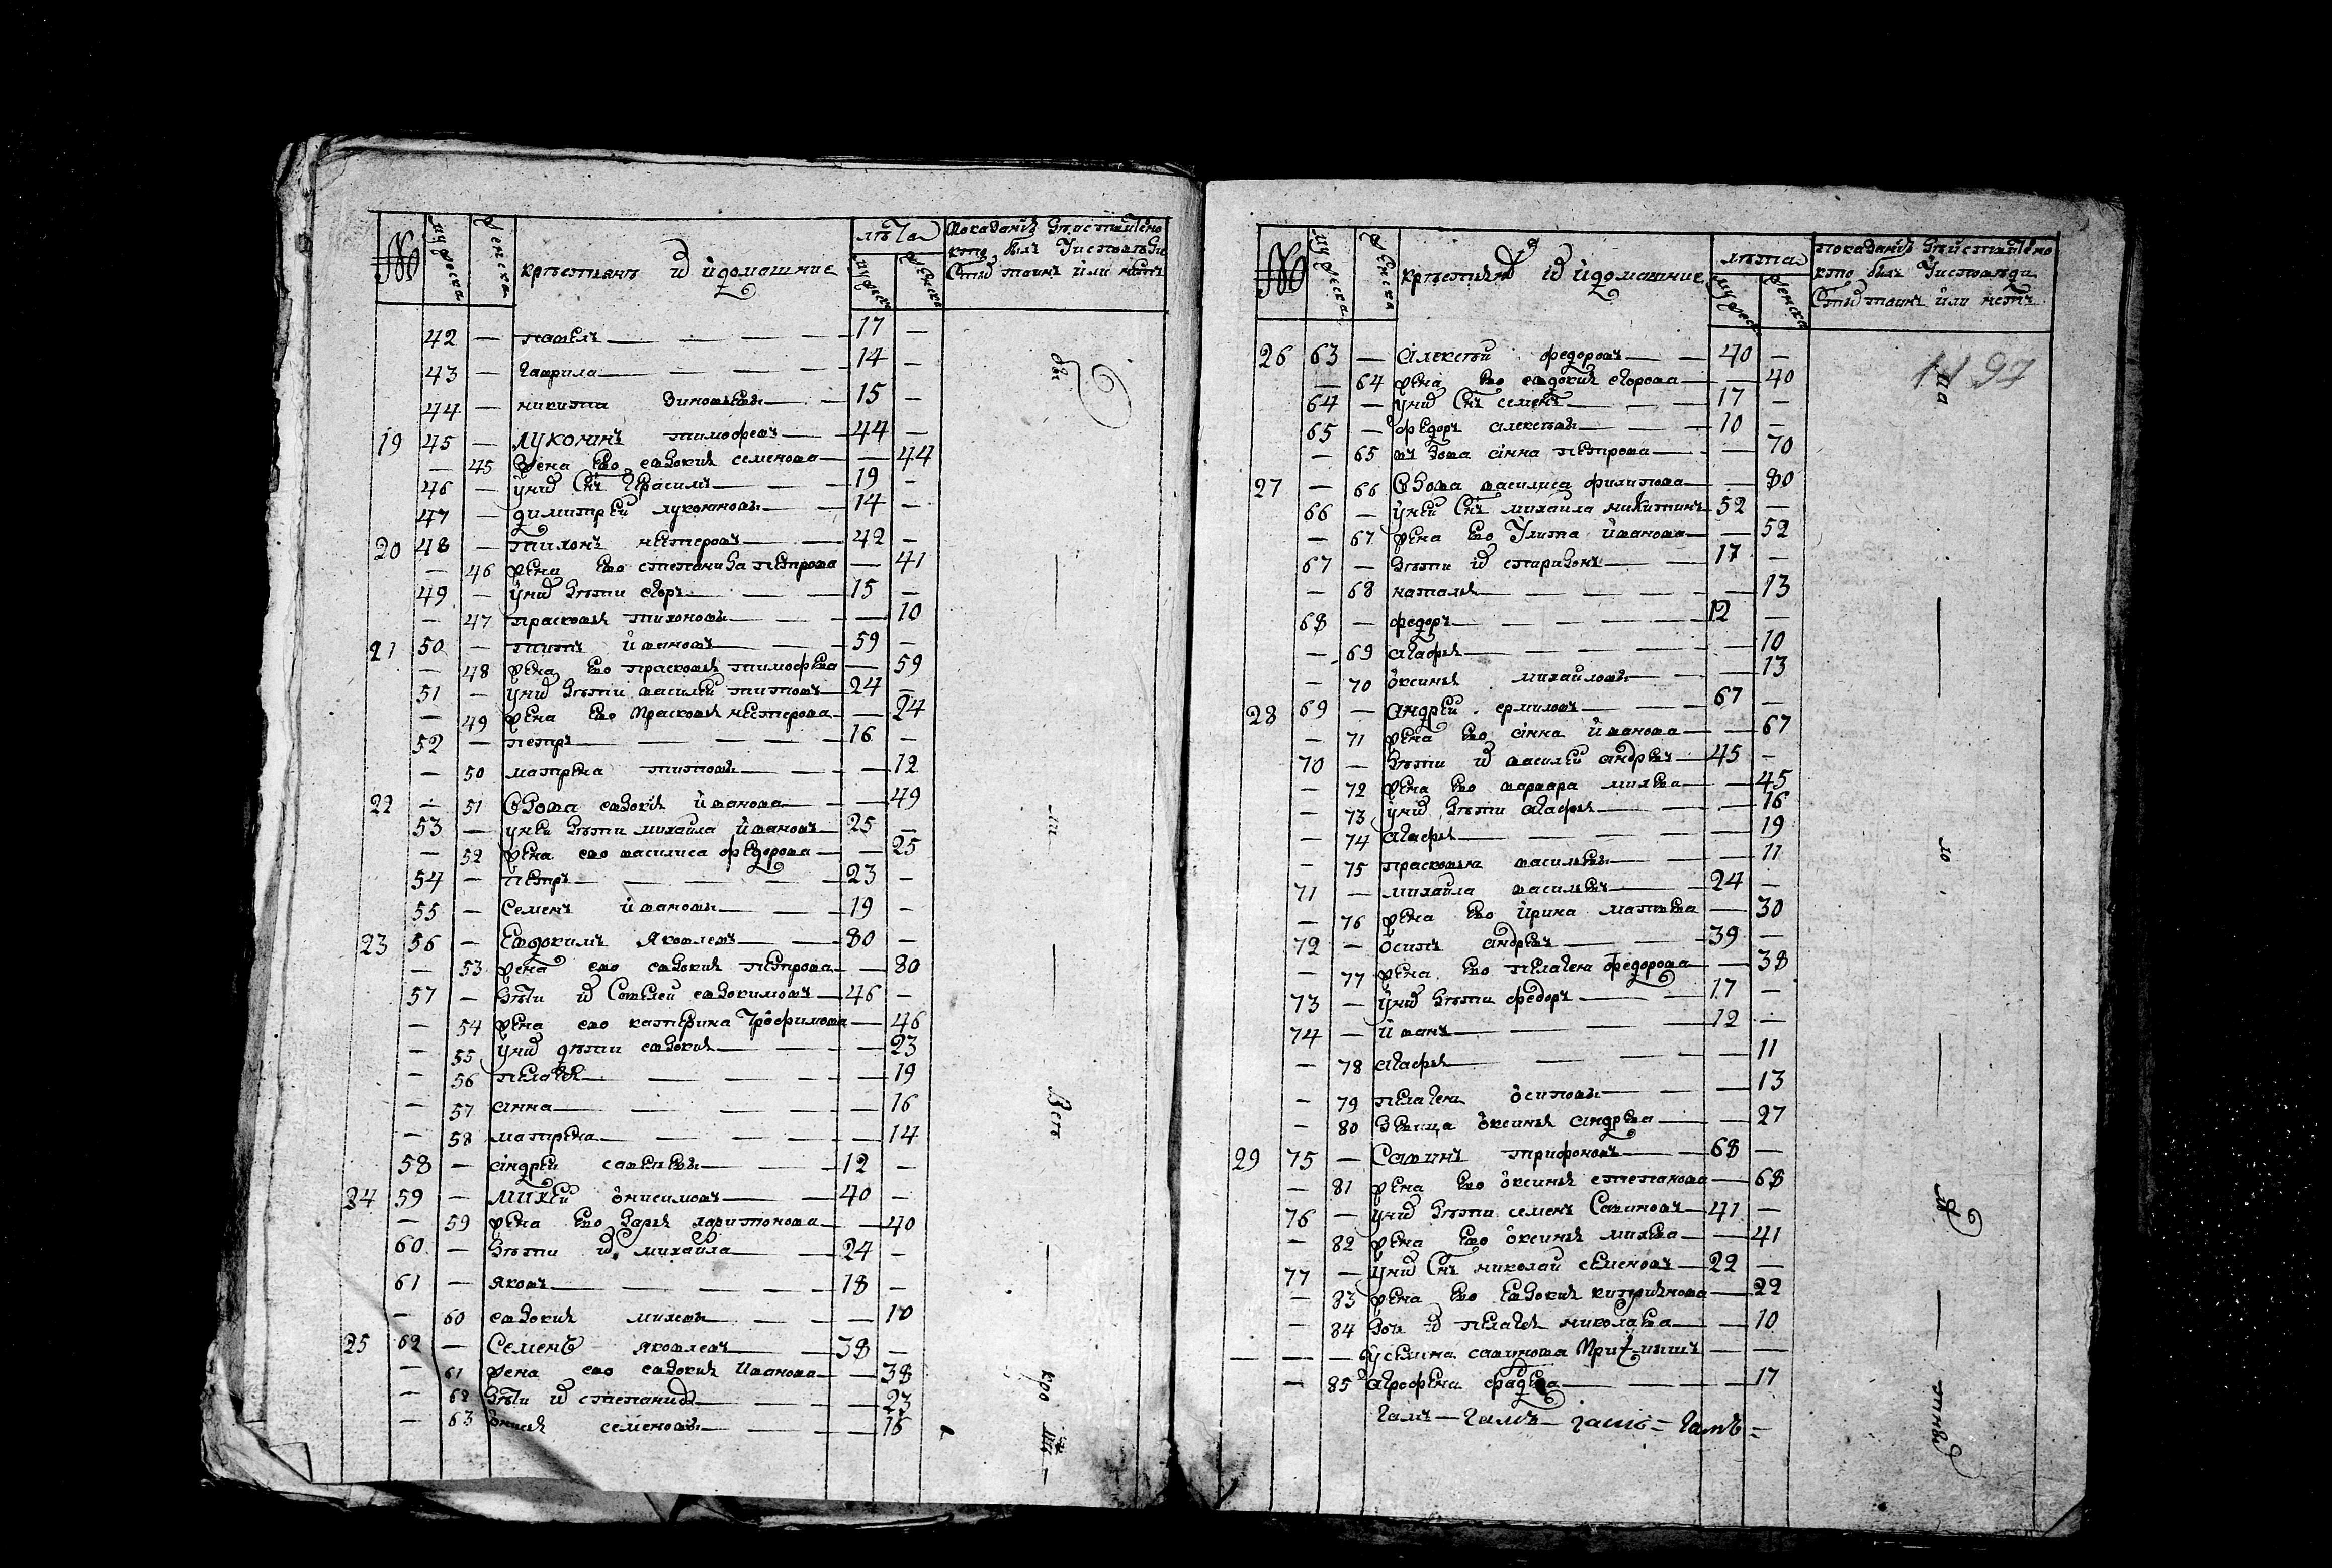 № мужеска женска крестьянъ и ихъ домашние лѣта мужеска женска показаніе действително кто былъ У исповѣди Стыхъ таинъ или нетъ
42 — павелъ — 17 —
43 — гаврила — 14 —
44 — никита зиновьевы — 15 —
19 45 — лукоянъ тимофеевъ — 44 —
— 45 жена ево евдокия семенова — — 44
46 — у них Снъ герасимъ — 19 —
47 — димитрей лукояновы — 14 —
20 48 — тихонъ нестеровъ — 42 —
— 46 жена ево степанида петрова — 41
49 — у них дѣти егоръ — 15 —
— 47 прасковья тихоновы — — 10
21 50 — титъ ивановъ — 59 —
— 48 жена ево прасковья тимофѣева — 59
51 — у них дѣти василей титовъ — 24 —
— 49 жена ево прасковья нестерова — — 24
52 — петръ — 16 —
— 50 матрена титовы — — 12
22 — 51 вдова евдокия иванова — — 49
53 — у ней дѣти михайла ивановъ — 25 —
— 52 жена ево василиса федорова — — 25
54 — петръ — 23 —
55 — Семенъ ивановы — 19 —
23 56 — Евдокимъ яковлевъ — 80 —
— 53 жена ево евдокия петрова — — 80
57 — дѣти их Савелей евдокимовъ — 46 —
— 54 жена ево катерина трофимова — 46
— 55 у них дѣти евдокия — — 23
— 56 пелагея — — 19
— 57 анна — — 16
— 58 матрена — — 14
58 — андрей савельевы — 12 —
24 59 — михей онисимовъ — 40 —
— 59 жена ево дарья харитонова — — 40
60 — дѣти их михайла — 24 —
61 — яковъ — 18 —
— 60 евдокия михеевы — — 10
25 62 — Семенъ яковлевъ — 38 —
— 61 жена ево евдокия иванова — — 38
— 62 дѣти их степанида — — 23
— 63 семеновы — — 16
№ мужеска женска крестьянъ их и домашние лѣта мужеска женска показаніе действително кто былъ У исповѣди Стыхъ таинъ или нетъ
97
26 63 — алексѣй федоровъ — 40 —
— 64 жена ево евдокия егорова — — 40
64 — у них Снъ семенъ — 17 —
65 — федоръ алексѣевы — 10 —
— 65 вдова анна петрова — — 70
27 — 66 вдова василиса филипова — — 80
66 — у ней Снъ михайла никитинъ — 52 —
— 67 жена ево улита иванова — — 52
67 — дѣти их спиридонъ — 17 —
— 68 наталья — — 13
68 — федоръ — 12 —
— 69 агафья — — 10
— 70 оксинья михайловы — — 13
28 69 — андрей ермиловъ — 67 —
— 71 жена ево анна иванова — — 67
70 — дѣти их василей андреевъ — 45 —
— 72 жена ево варвара михева — — 45
— 73 у них дѣти агафья — — 16
— 74 агафья — — 19
— 75 прасковья васильевы — — 11
71 — михайла васильевъ — 24 —
— 76 жена ево ирина матвева — 30
72 — осипъ андревъ — 39 —
— 77 жена ево пелагея федорова — — 38
73 — у них дѣти федоръ — 17 —
74 — иванъ — 12 —
— 78 агафья — — 11
— 79 пелагея осиповы — — 13
— 80 девица оксинья андрева — — 27
29 75 — Савинъ трифоновъ — 68 —
— 81 жена ево оксинья степанова — 68
76 — у них дѣти семенъ Савиновъ — 41 —
— 82 жена ево оксинья михева — — 41
77 — у них Снъ николай семеновъ — 22 —
— 83 жена ево евдокия киприянова — 22
— 84 дочь их пелагея николаева — — 10
— — — у семена савинова приемышъ — —
— 85 агрофена фадева — — 17